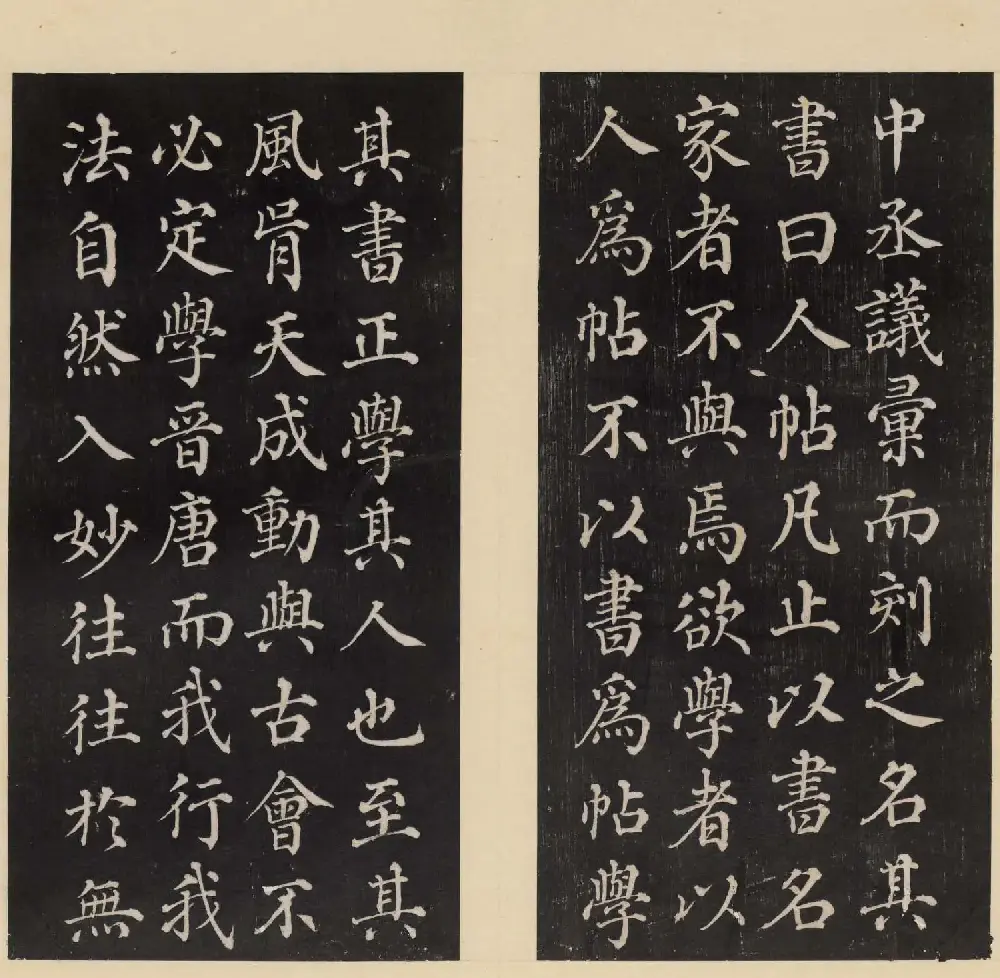 中丞議彙而刻之名其
書曰人帖凡止以書名
家者不與焉欲學者以
人爲帖不以書爲帖學
其書正學其人也至其
風骨天成動與古會不
必定學晉唐而我行我
法自然入妙往往於無